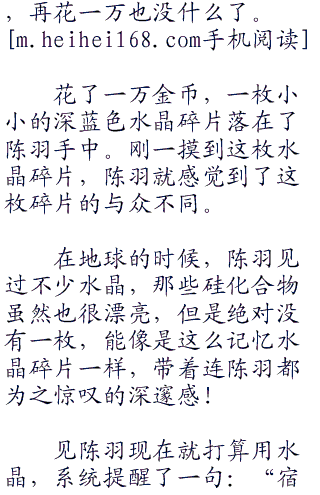 ，再花一万也没什么了。
[m.heihei168.com手机阅读]
花了一万金币，一枚小
小的深蓝色水晶碎片落在了
陈羽手中。刚一摸到这枚水
晶碎片，陈羽就感觉到了这
枚碎片的与众不同。
在地球的时候，陈羽见
过不少水晶，那些硅化合物
虽然也很漂亮，但是绝对没
有一枚，能像是这么记忆水
晶碎片一样，带着连陈羽都
为之惊叹的深邃感！
见陈羽现在就打算用水
晶，系统提醒了一句：“宿